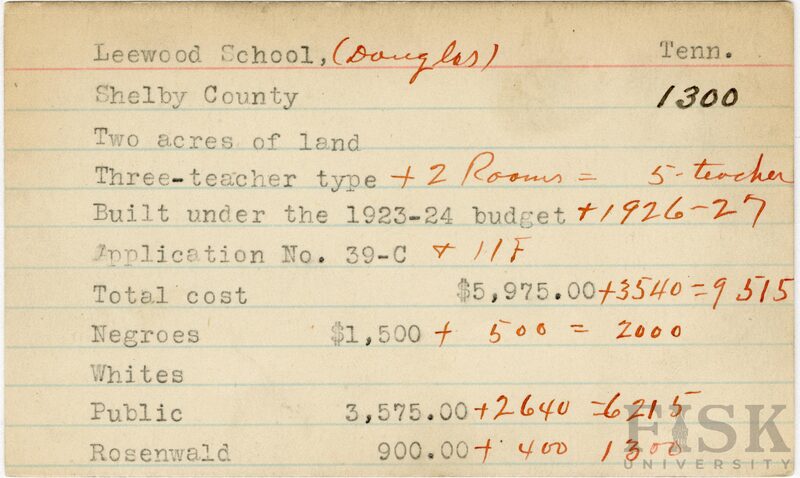 Leewood School, (Douglas) Tenn.
Shelby County 1300
Two acres of land
Three-teacher type + 2 Rooms = 5-teacher
Built under the 1923-24 budget + 1926-27
Application No. 39-C + 11F
Total cost $5,975.00 + 3540 = 9515
Negroes $1,500 + 500 = 2000
Whites
Public 3,575.00 + 2640 = 6215
Rosenwald 900.00 + 400 1300
FISK
UNIVERSITY